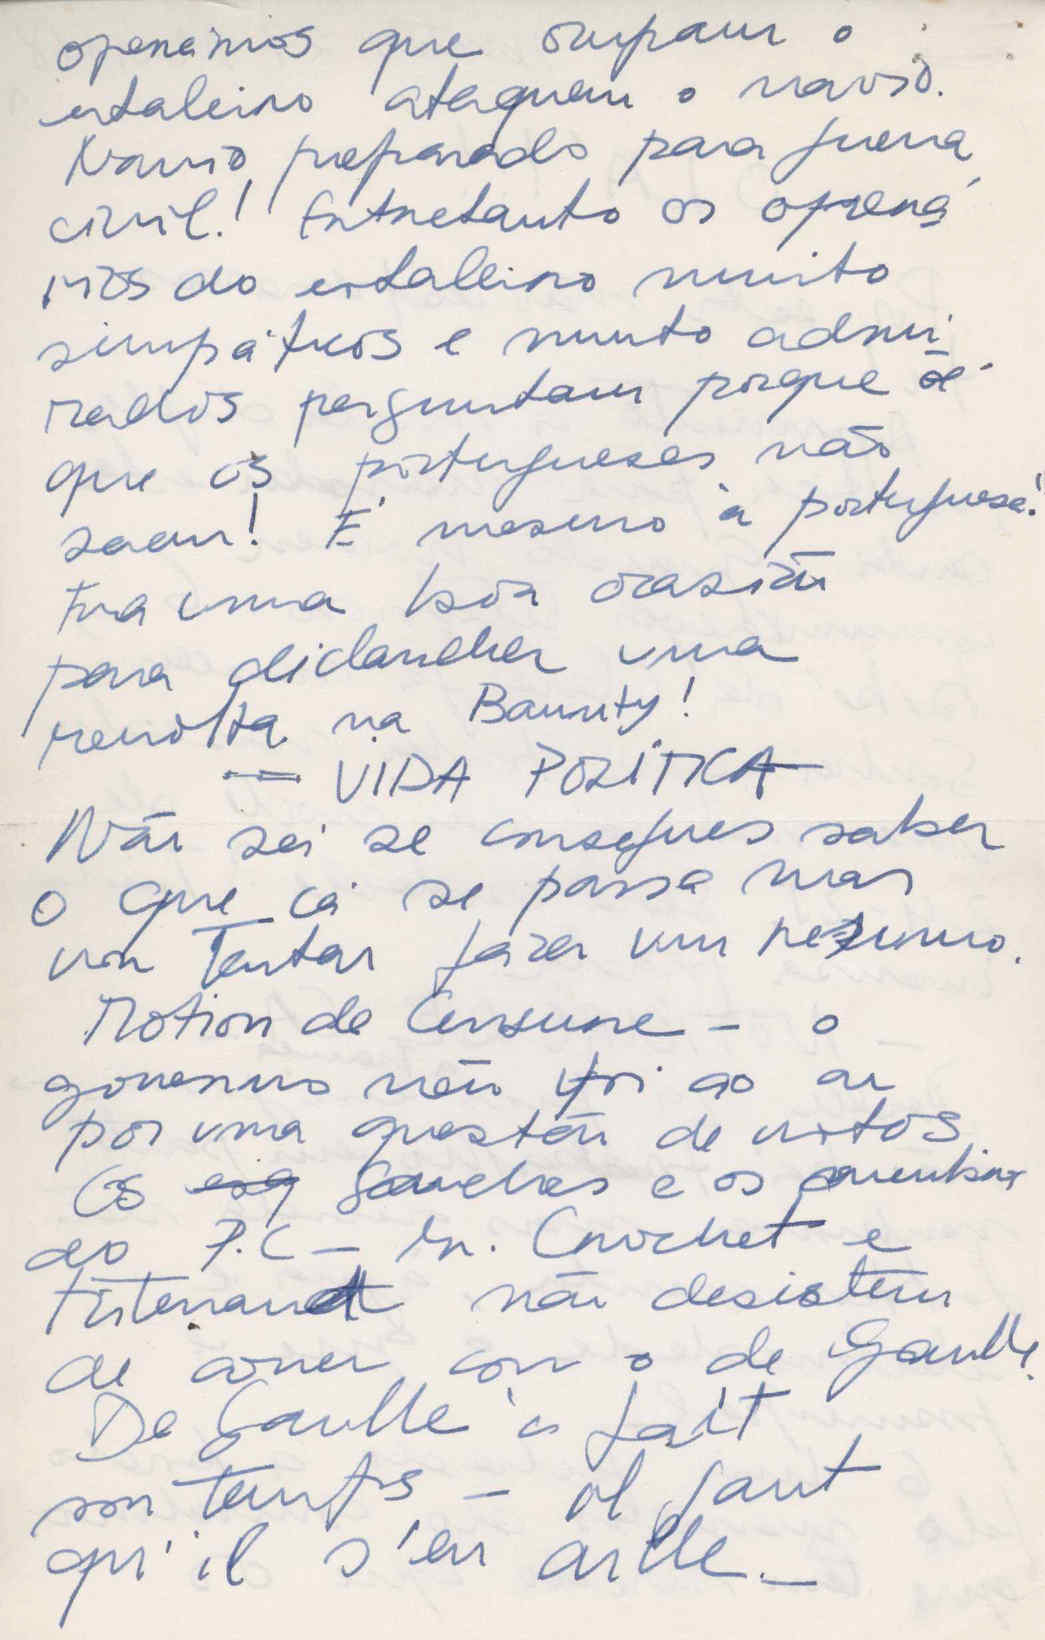 operários que ocupam o
estaleiro ataquem o navio.
Navio preparado para guerra
civil! Entretanto os operá
rios do estaleiro muito
simpáticos e muito admi
rados perguntam porque é
que os portugueses não
saem! É mesmo à portuguesa!
Era uma boa ocasião
para diclancher uma
revolta na Bounty!
— VIDA POLÍTICA
Não sei se consegues saber
o que cá se passa mas
vou tentar fazer um resumo.
Motion de Censure – o
governo não foi ao ar
por uma questão de votos
Os Gauches e os
do P.C – Mr. Crochet e
não desistem
de correr com o de Gaulle.
De Gaulle à fait
son temps – il faut
qu'il s'en aille. –